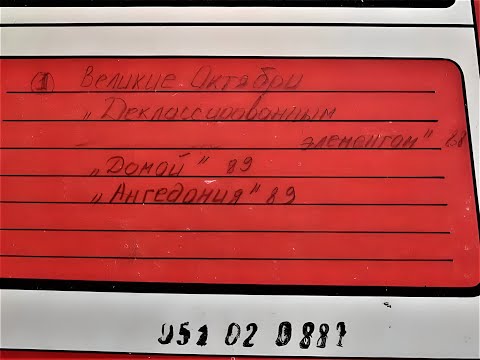 ① Великие Октябри
„Деклассированным
элементам" 88
„Домой" 89
„Ангедония" 89
051 02 0887